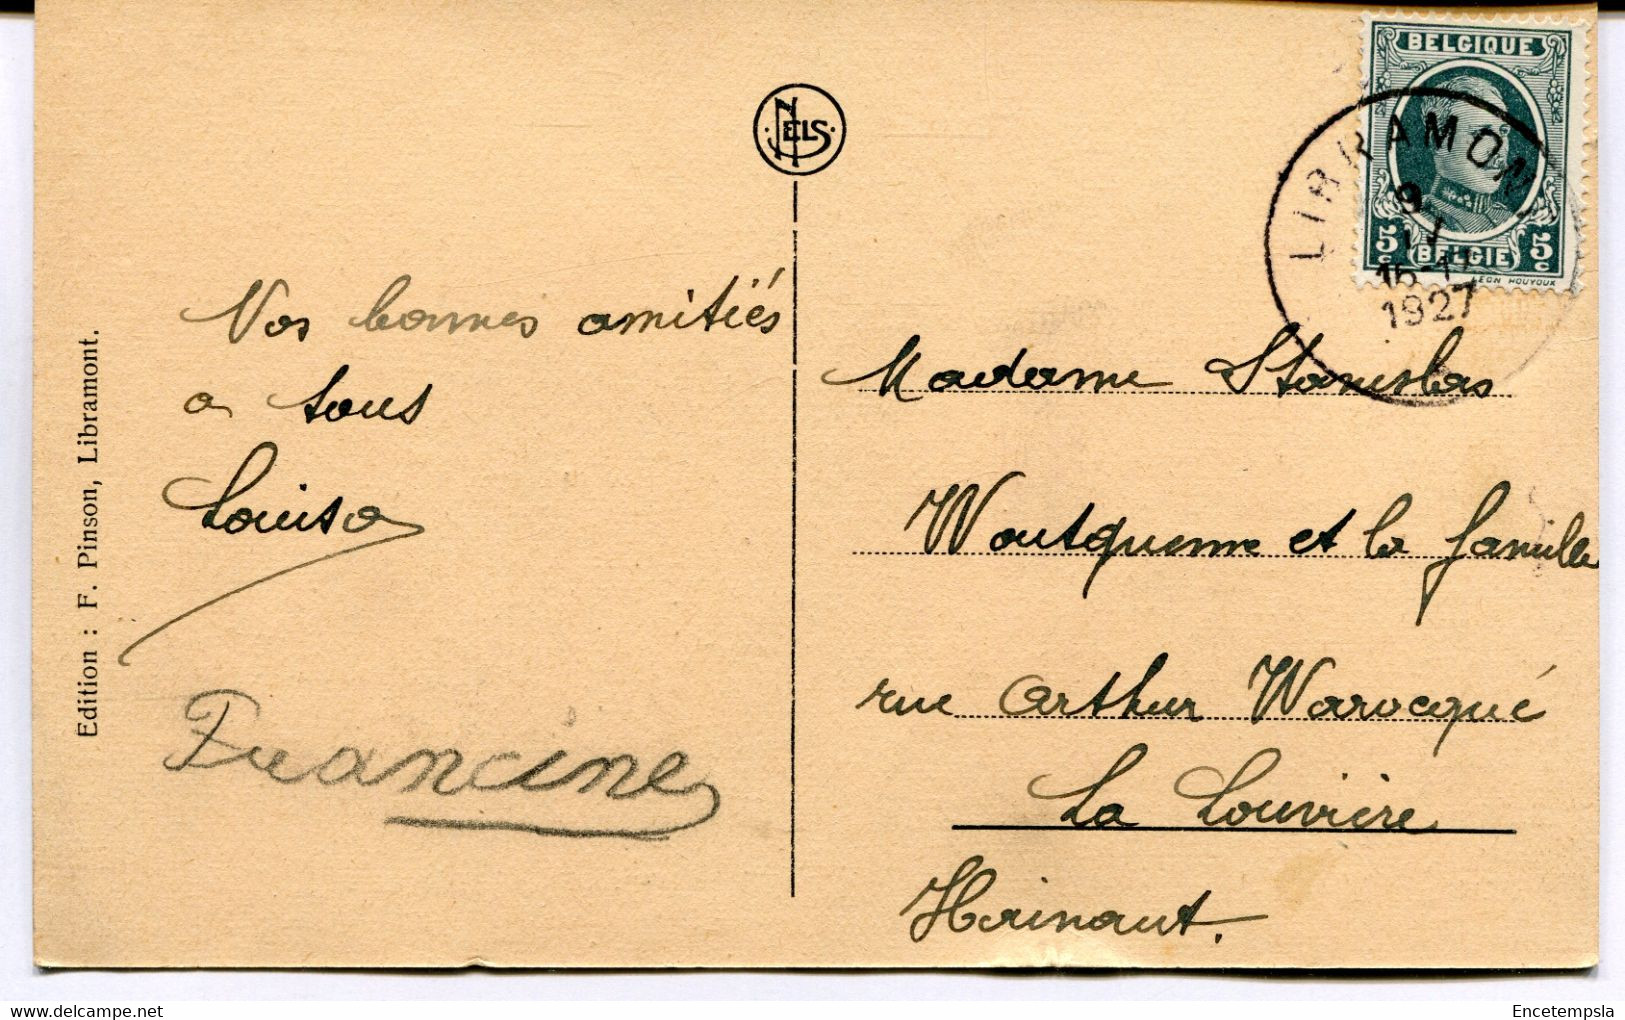 Edition : F. Pinson, Libramont.
NELS
Vos bonnes amitiés
a tous
Louisa
Francine
BELGIQUE
5c BELGIE 5c
LEON HOUYOUX
LIBRAMON
9
1927
Madame Stanislas
Woutquenne et la famille
rue Arthur Warocqué
La Louvière
Hainaut.
Encetempsla